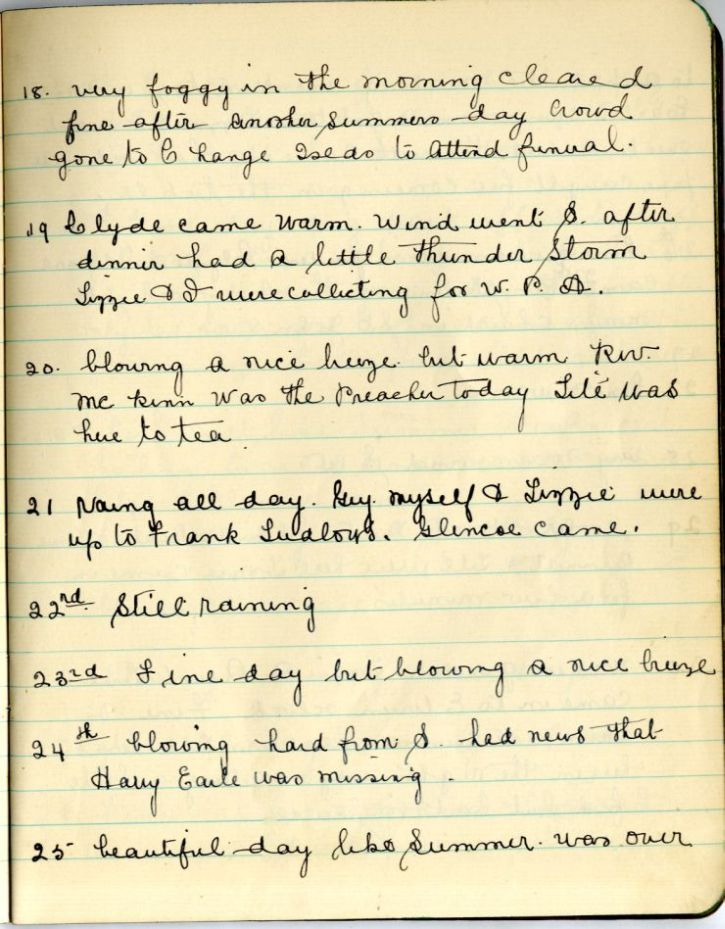 18. very foggy in the morning cleared
fine after another summers day Crowd
gone to Change Isds to attend funual.
19 Clyde came warm. Wind went S. after
dinner had a little thunder Storm
Lizzie & I were collecting for W. P. A.
20. blowing a nice breeze but warm Rev.
Mc Kinn was the Preacher today was
here to tea
21 Raing all day. Guy. myself & Lizzie were
up to Frank Ludlows. Glencoe came.
22nd Still raining
23rd Fine day but blowing a nice breeze
24th blowing hard from S. had news that
Harry Earle was missing.
25 beautiful day like Summer. was over